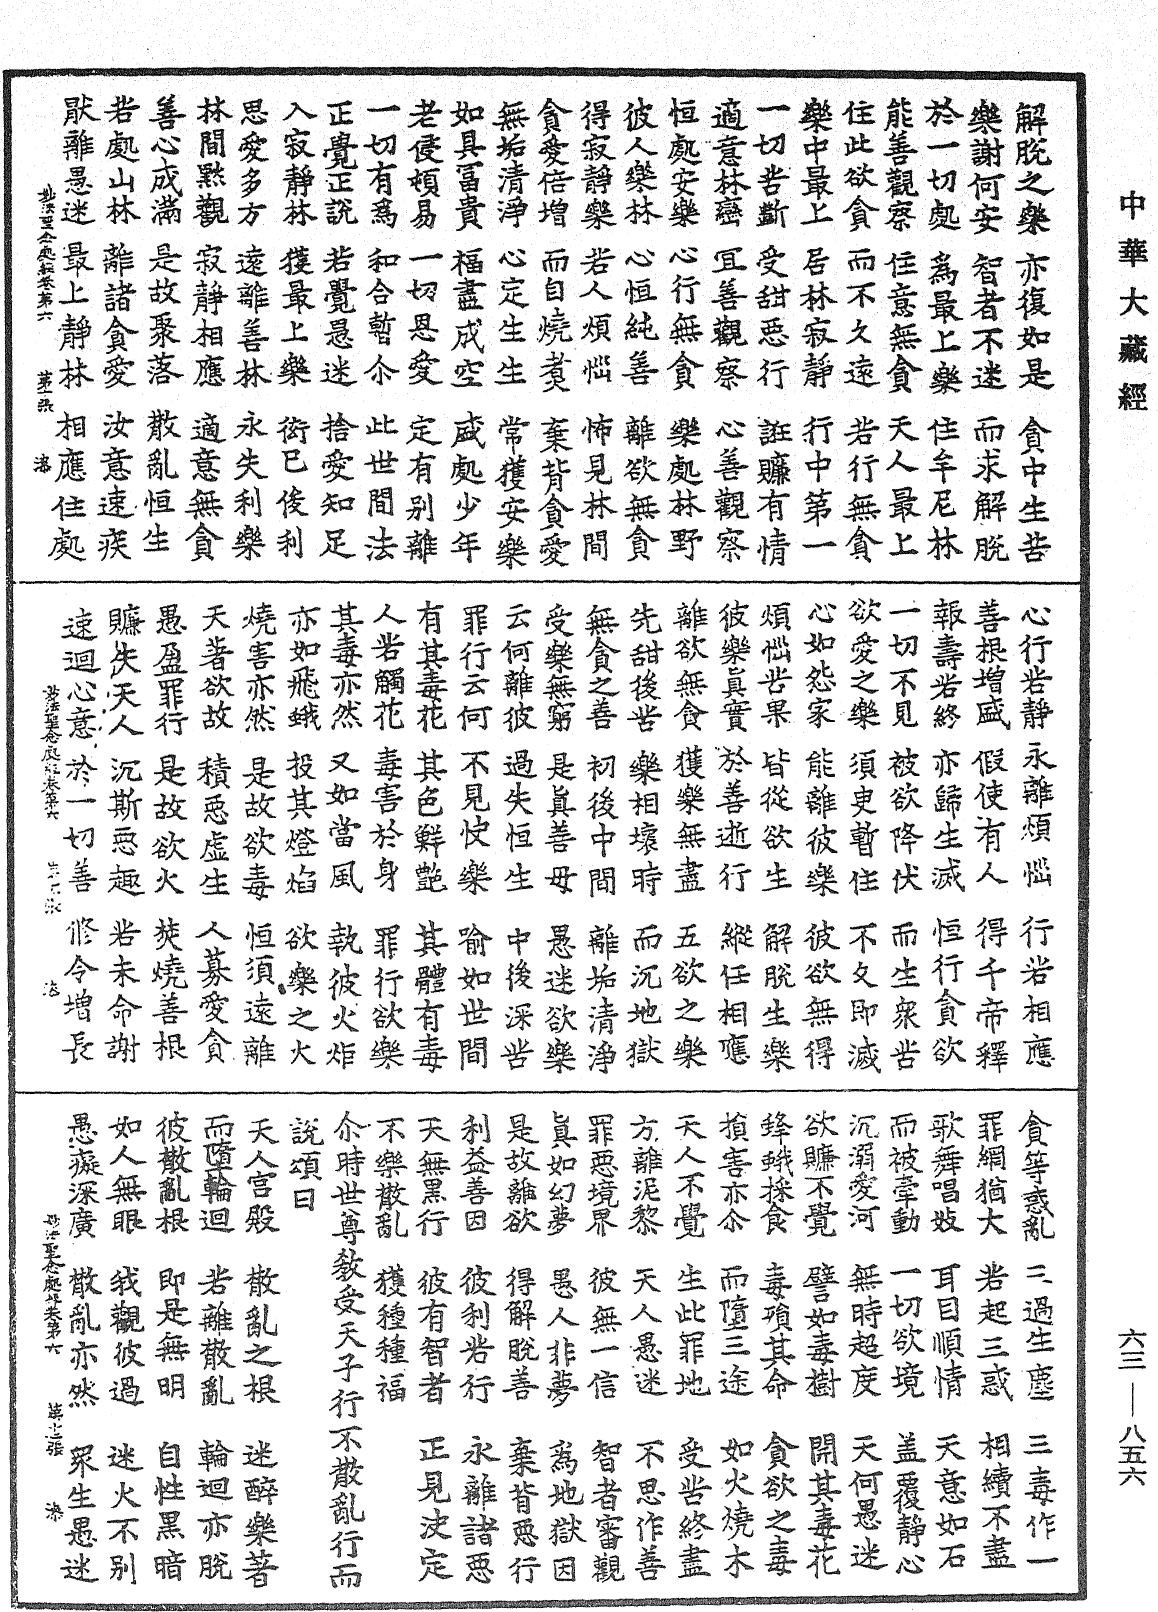 中華大藏經
解脫之樂　亦復如是　貪中生苦
樂謝何安　智者不迷　而求解脫
於一切處　為最上樂　住牟尼林
能善觀察　住意無貪　天人最上
住此欲貪　而不久遠　若行無貪
樂中最上　居林寂靜　行中第一
一切苦斷　受甜惡行　誑賺有情
適意林巒　宜善觀察　心善觀察
恒處安樂　心行無貪　樂處林野
彼人樂林　心恒純善　離欲無貪
得寂靜樂　若人煩惱　怖見林間
貪愛倍增　而自燒煑　棄背貪愛
無垢清淨　心定生生　常獲安樂
如具富貴　福盡成空　盛處少年
老侵頓易　一切恩愛　定有別離
一切有為　和合暫尒　此世間法
正覺正說　若覺愚迷　捨愛知足
入寂靜林　獲最上樂　衒巳後利
思愛多方　遠離善林　永失利樂
林間默觀　寂靜相應　適意無貪
善心成滿　是故聚落　散亂恒生
若處山林　離諸貪愛　汝意速疾
猒離愚迷　最上靜林　相應住處
妙法聖念處經卷第六　第二張
心行若靜　永離煩惱　行若相應
善根增盛　假使有人　得千帝釋
報壽若終　亦歸生滅　恒行貪欲
一切不見　被欲降伏　而生衆苦
欲愛之樂　須臾暫住　不久即滅
心如怨家　能離彼樂　彼欲無得
煩惱苦果　皆從欲生　解脫生樂
彼樂真實　於善逝行　縱任相應
離欲無貪　獲樂無盡　五欲之樂
先甜後苦　樂相壞時　而沉地獄
無貪之善　初後中間　離垢清淨
受樂無窮　是真善母　愚迷欲樂
云何離彼　過失恒生　中後深苦
罪行云何　不見快樂　喻如世間
有其毒花　其色鮮艷　其體有毒
人若觸花　毒害於身　罪行欲樂
其毒亦然　又如當風　執彼火炬
亦如飛蛾　投其燈焰　欲樂之火
燒害亦然　是故欲毒　恒須遠離
天著欲故　積惡虛生　人募愛貪
愚盈罪行　是故欲火　焚燒善根
賺失天人　沉斯惡趣　若未命謝
速迴心意　於一切善　修令增長
妙法聖念處經卷第六
貪等惑亂　二過生塵　三毒作一
罪網猶大　若起三惑　相續不盡
歌舞唱妓　耳目順情　天意如石
而被牽動　一切欲境　盖覆靜心
沉溺愛河　無時超度　天何愚迷
欲賺不覺　譬如毒樹　開其毒花
蜂蛾採食　毒殞其命　貪欲之毒
損害亦尒　而墮三途　如火燒木
天人不覺　生此罪地　受苦終盡
方離泥黎　天人愚迷　不思作善
罪惡境界　彼無一信　智者審觀
真如幻夢　愚人非夢　為地獄因
是故離欲　得解脫善　棄背惡行
利益善因　彼利若行　永離諸惡
天無黑行　彼有智者　正見決定
不樂散亂　獲種種福
尒時世尊教受天子行不散亂行而
說頌曰
天人宮殿　散亂之根　迷醉樂著
而墮輪迴　若離散亂　輪迴亦脫
彼散亂根　即是無明　自性黑暗
如人無眼　我觀彼過　迷火不別
愚癡深廣　散亂亦然　衆生愚迷
妙法聖念處經卷第六　第七張
六三—八五六